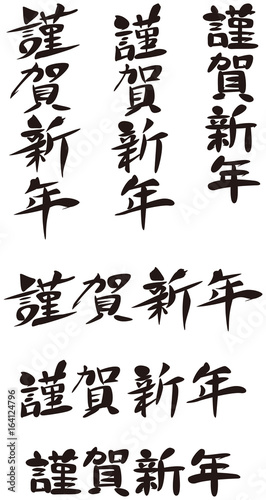 謹賀新年
謹賀新年
謹賀新年
謹賀新年
謹賀新年
謹賀新年
Adobe Stock | #164124796